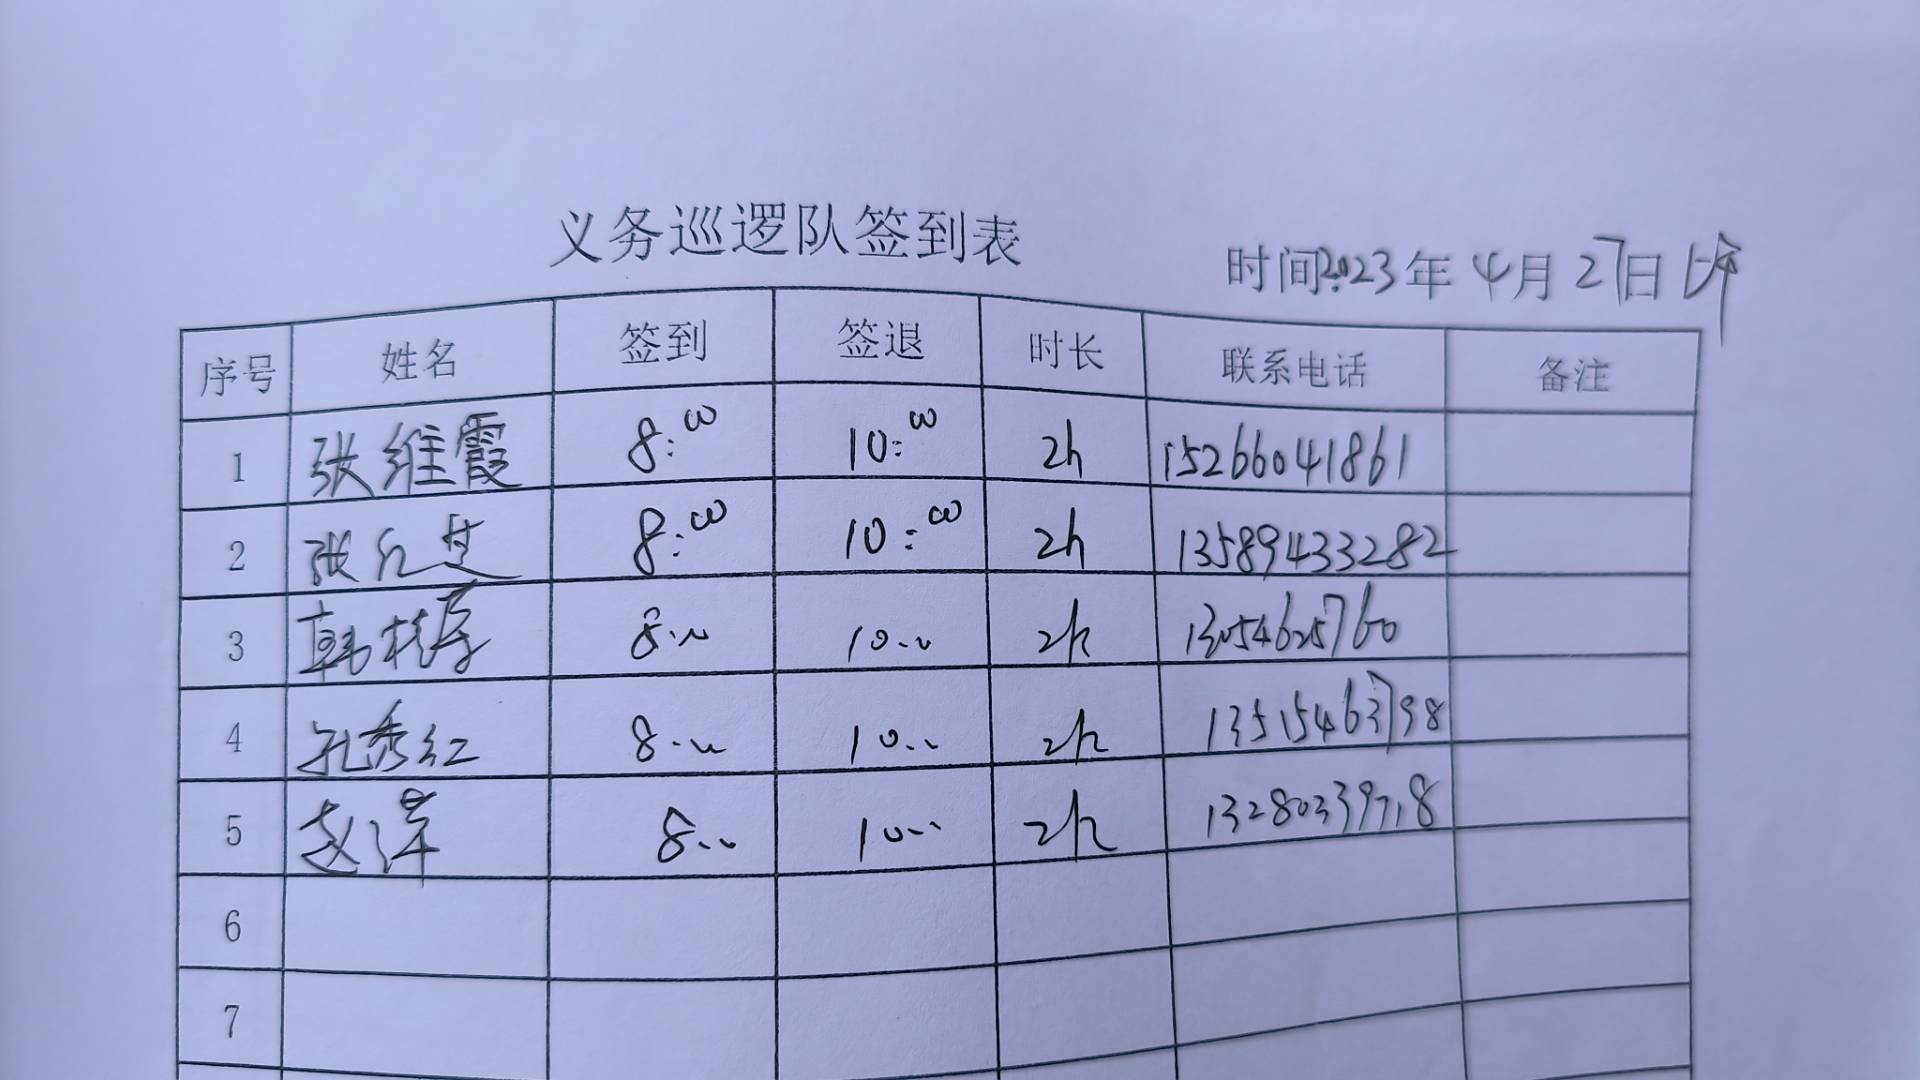 义务巡逻队签到表
时间2023年4月27日 上午
序号 姓名 签到 签退 时长 联系电话 备注
1 张维霞 8:00 10:00 2h 15266041861
2 张红芝 8:00 10:00 2h 13589433282
3 韩桂 8:00 10:00 2h 13054625760
4 孔秀红 8:00 10:00 2h 13515463798
5 赵萍 8:00 10:00 2h 13280339718
6
7